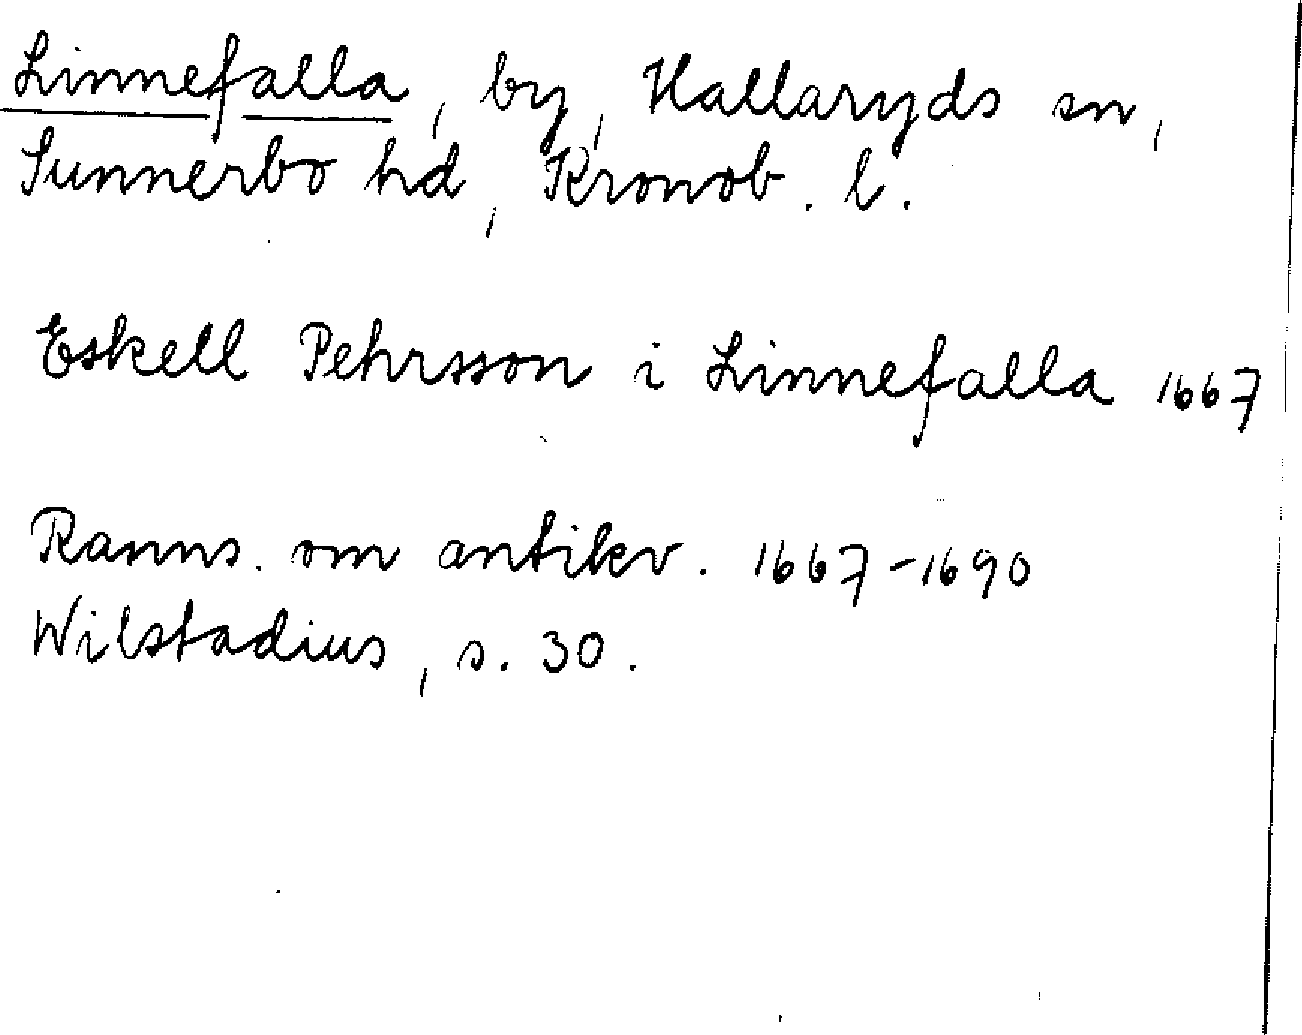 Linnefalla, by, Hallaryds sn,
Sunnerbo hd, Kronob. l.
Eskell Pehrsson i Linnefalla 1667
Ranns. om antikv. 1667-1690
Wilstadius, s. 30.